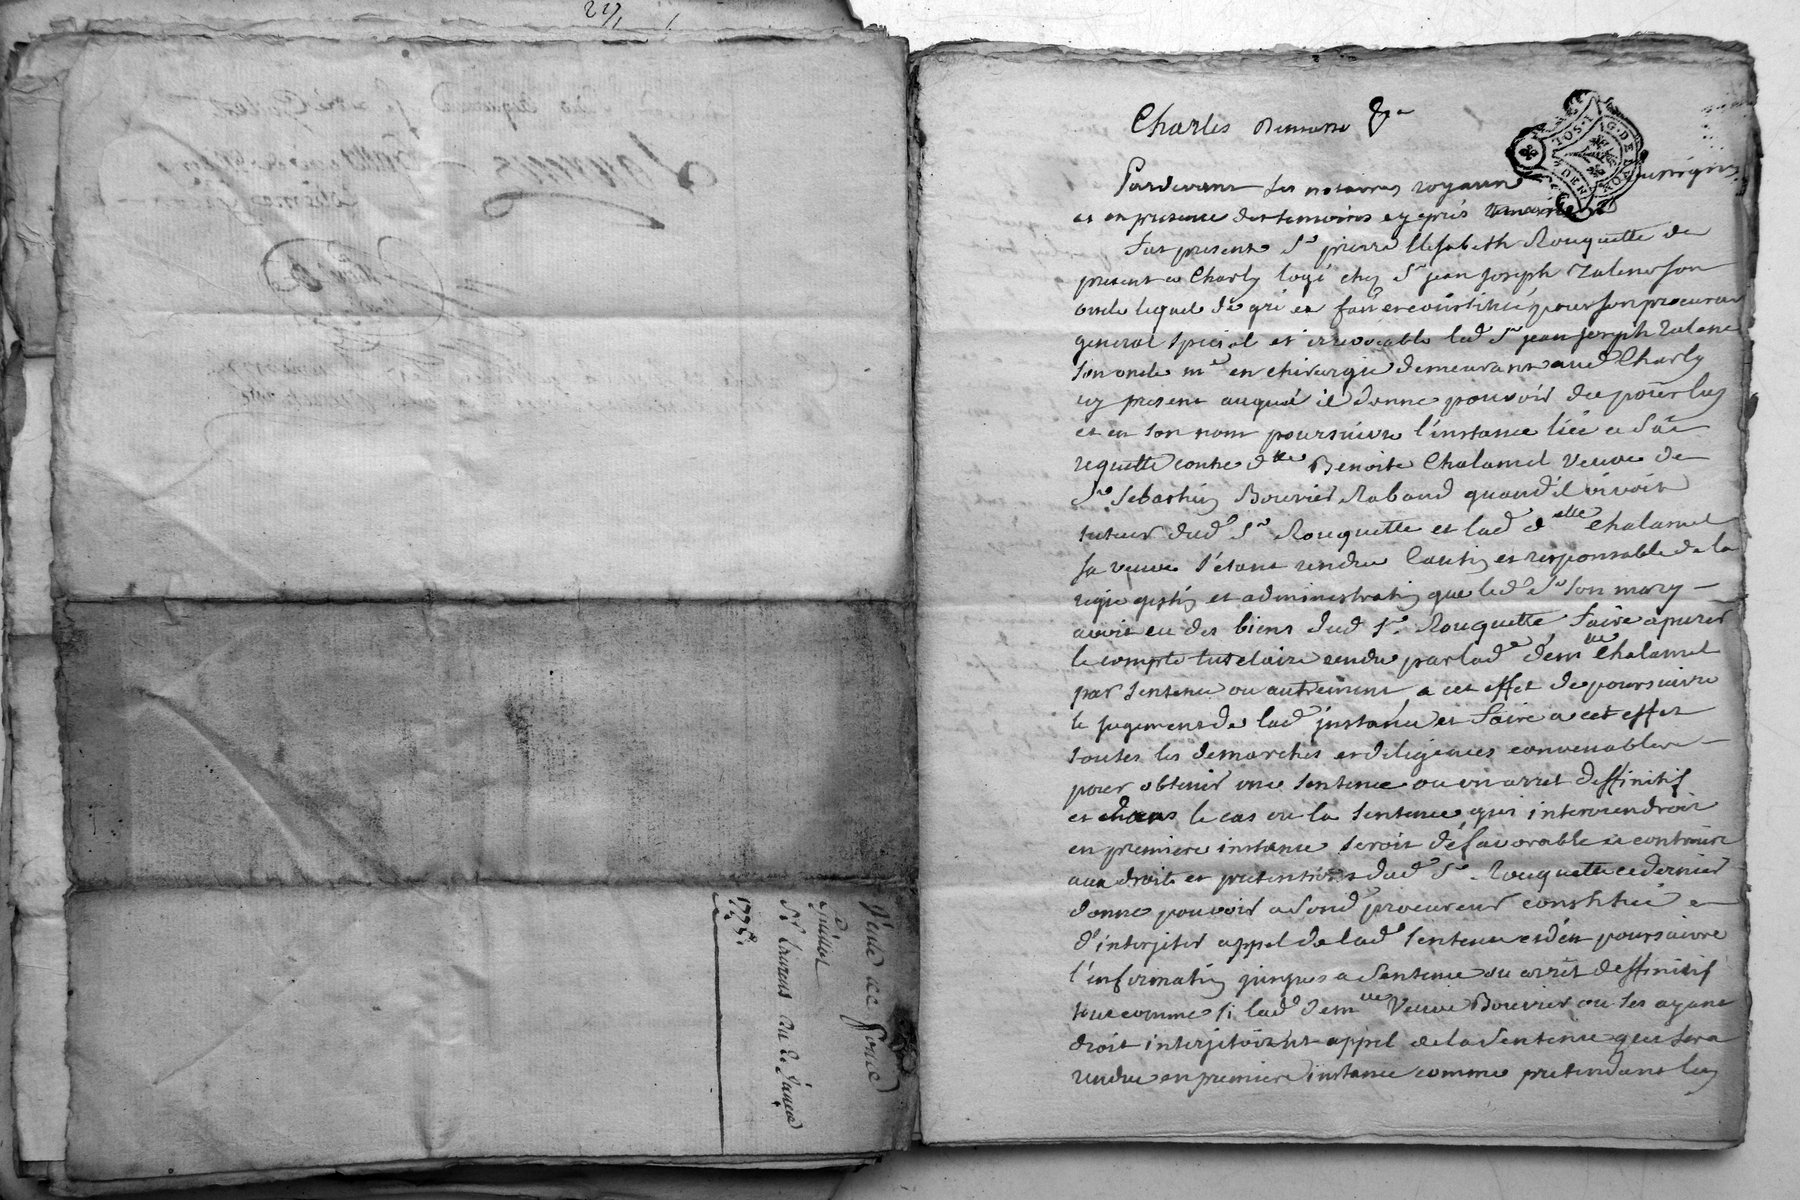 Vente de fond
Guillot
Sr Laurens du 2. Janver
1775.
Charles Demurre &a
Pardevant les notaires royaux soussignés
et en presence des temoins cy après
Fut present Sr pierre Elisabeth Rouquette de
present a Charly logé chez Sr jean joseph son
oncle lequel de gré en fait et constitué pour son procureur
general special et irrevocable led Sr jean joseph
son oncle me en chirurgie demeurant aud Charly
icy present auquel il donne pouvoir de pour luy
et en son nom poursuivre l'instance liée a sa
requette contre dlle Benoite Chalamel veuve de
Sr Sebastien Bouvier Rabaud quand il vivoit
tuteur dud Sr Rouquette et lad delle Chalamel
sa veuve s'etant rendue caution et responsable de la
regie gestion et administration que led Sr son mary
avoit eu des biens dud Sr. Rouquette, faire apurer
le compte tutelaire rendu par lad demlle Chalamel
par sentence ou autrement, a cet effet de poursuivre
le jugement de lad instance et faire a cet effet
toutes les demarches et diligences convenables
pour obtenir une sentence ou un arret deffinitif
et dans le cas ou la sentence qui interviendroit
en premiere instance seroit défavorable et contraire
aux droits et pretentions dud Sr. Rouquette ce dernier
donne pouvoir a sond procureur constitué
d'interjetter appel de lad sentence et d'en poursuivre
l'information jusques a sentence ou arrêt deffinitif
tout comme si lad demlle Veuve Bouvier ou ses ayant
droit interjetoient appel de la sentence qui sera
rendue en premiere instance comme pretendant luy